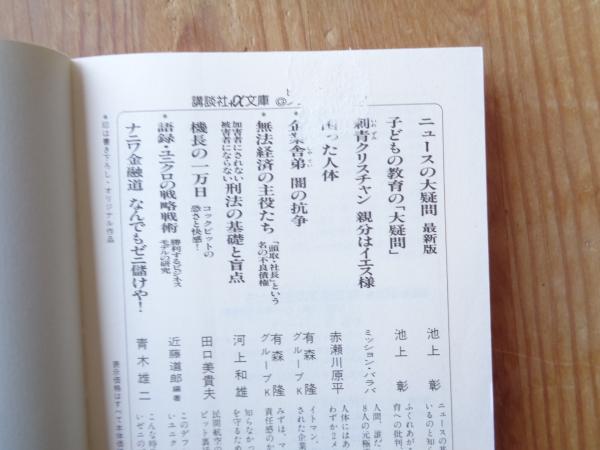 講談社+α文庫 @
ニュースの大疑問 最新版
池上 彰
子どもの教育の「大疑問」
池上 彰
刺青クリスチャン 親分はイエス様
いれずみ
ミッション・バラバ
った人体
赤瀬川原平
企業舎弟 闇の抗争
しゃてい
有森 隆
グループK
*無法経済の主役たち 「頭取・社長」という名の不良債権
有森 隆
グループK
加害者にされない
被害者にならない 刑法の基礎と盲点
河上和雄
機長の一万日 コックピットの
恐さと快感!
田口美貴夫
*語録・ユニクロの戦略戦術 勝利するビジネス
モデルの研究
近藤道郎 編著
ナニワ金融道 なんでもゼニ儲けや!
青木雄二
*印は書き下ろし・オリジナル作品
表示価格はすべて本体価
ニュースの基
いるのと知ら
ふくれあがる
育への批判、
人間、誰だ
8人の元極
人体にはあ
わずか2メ
イトマン、
された企業
みずほ、マ
責任感のか
知らなかっ
を守るため
民間航空の
ピット裏話
このデフ
いユニク
こんな時
いゼニの